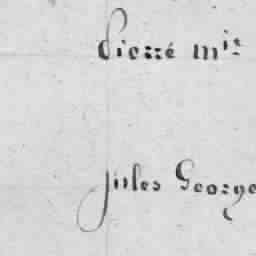 Pierre mie
jules George